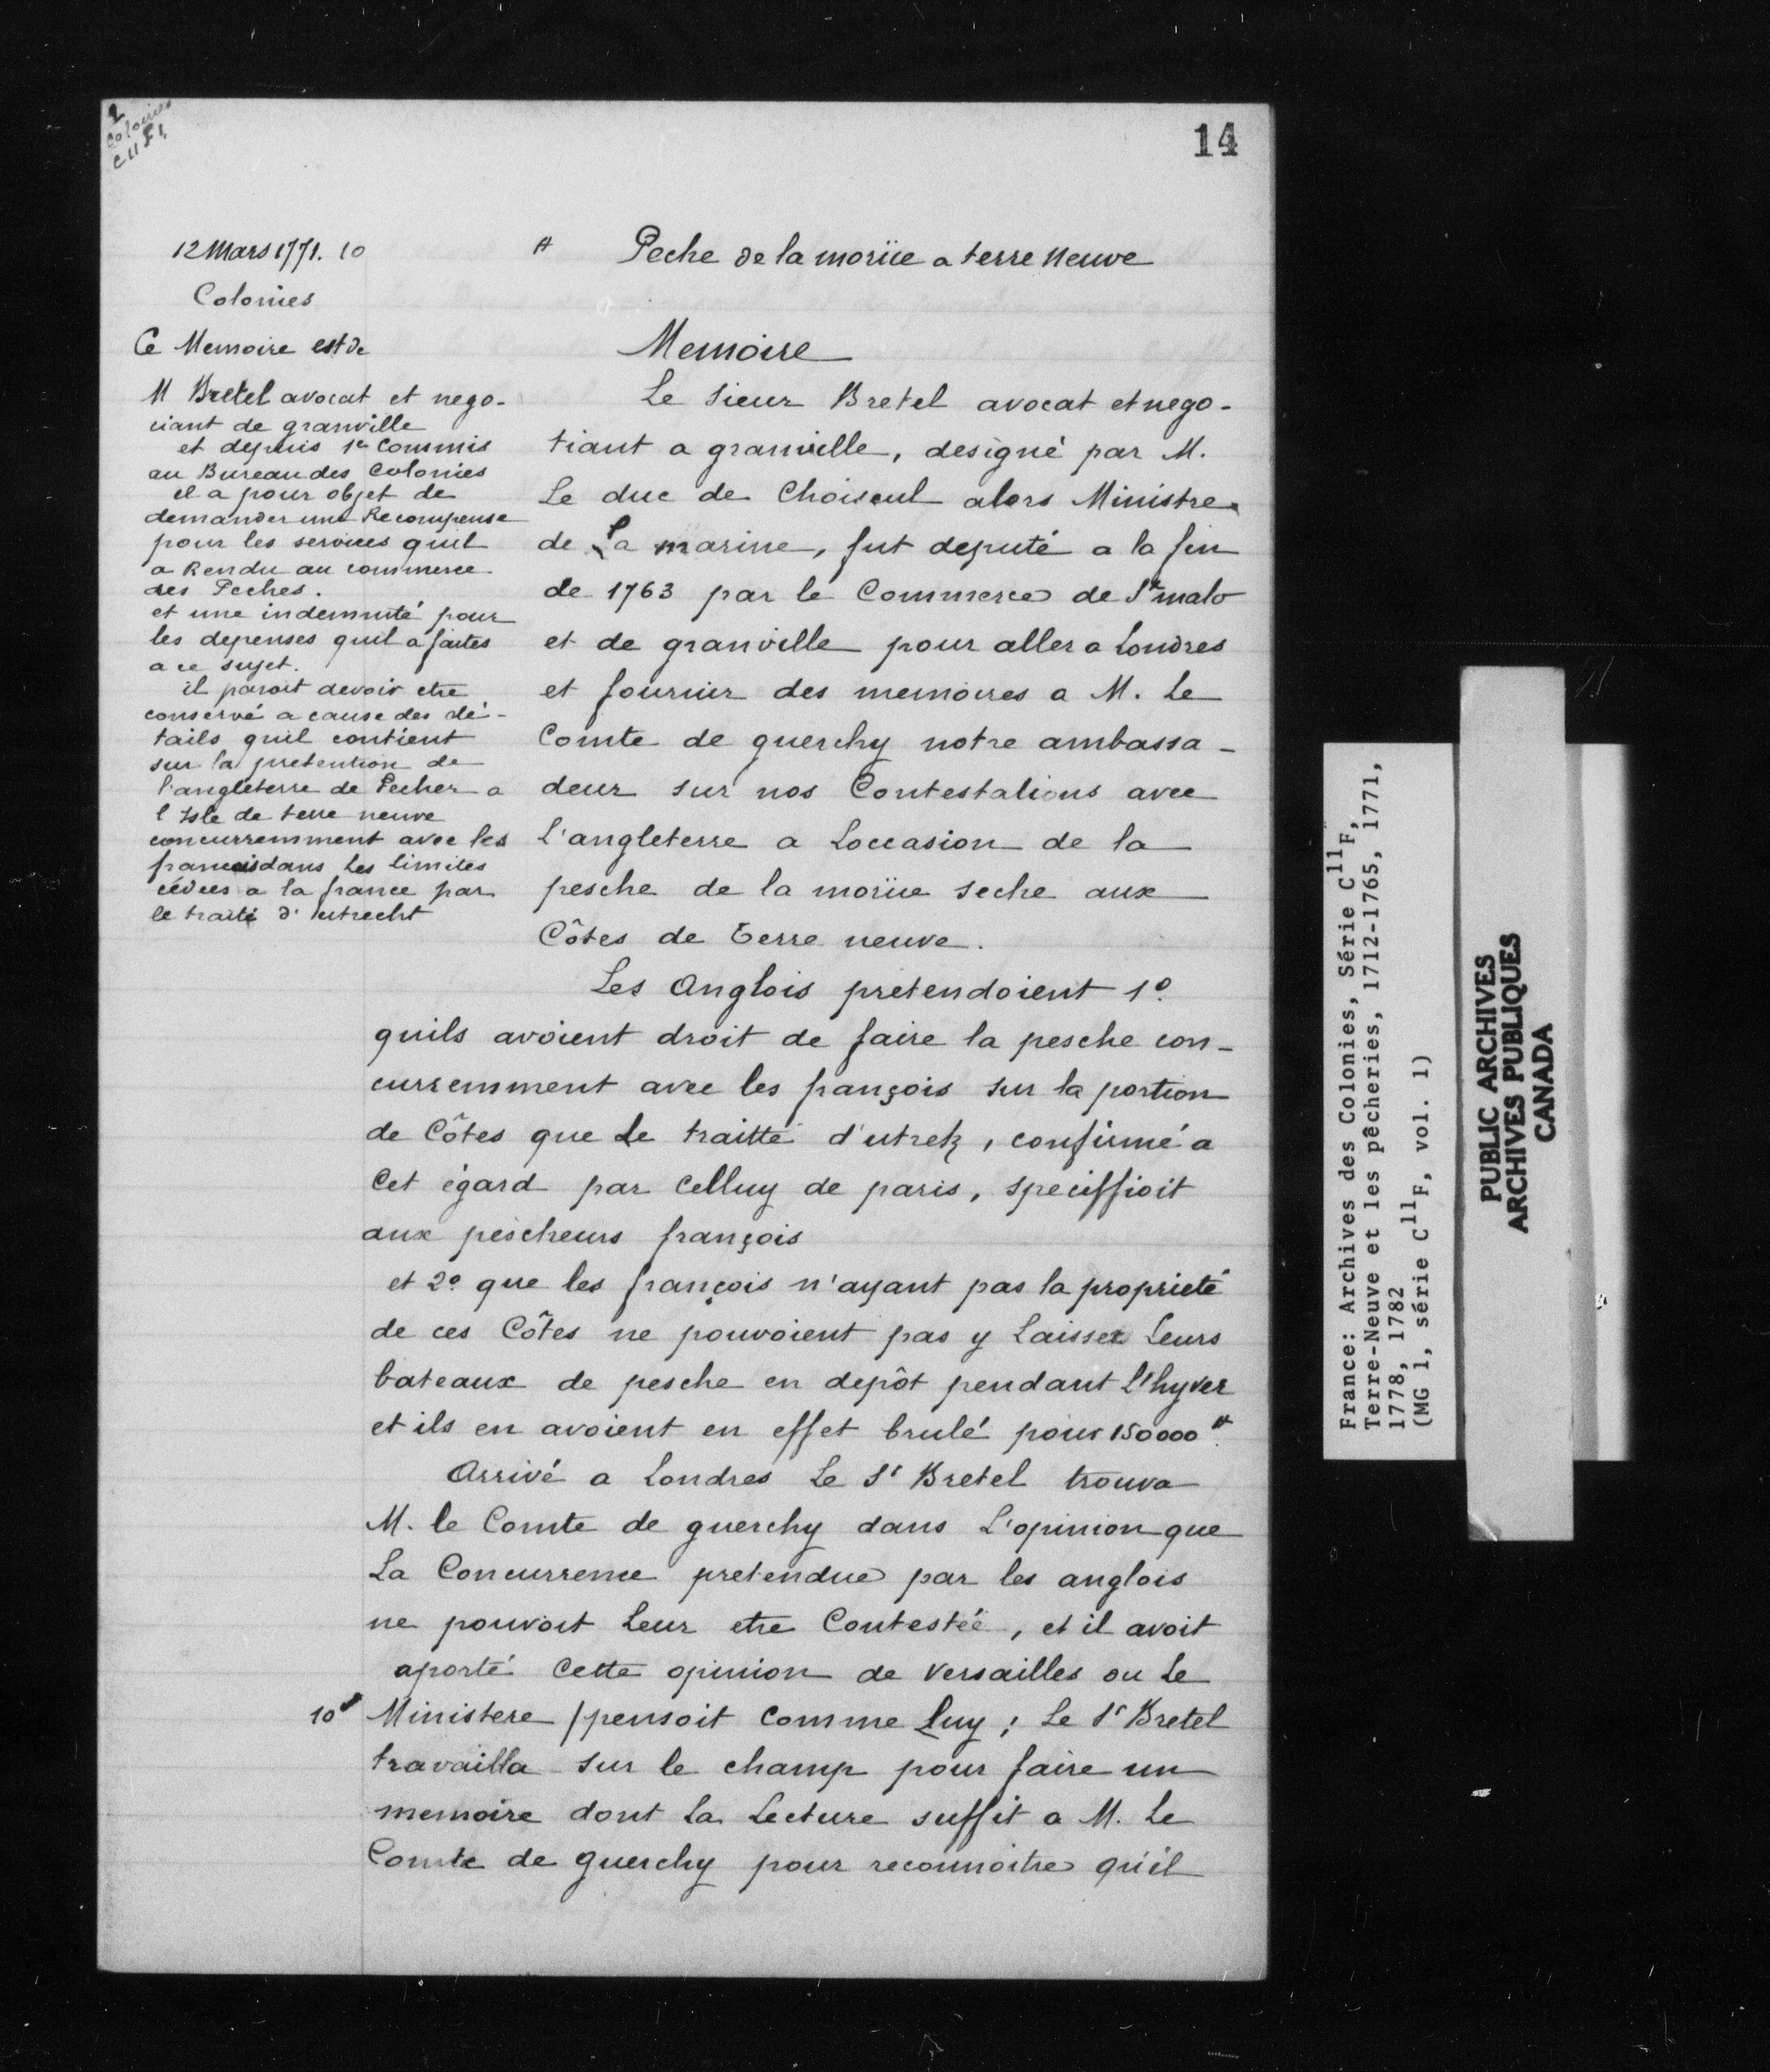 1
Colonies
C11 F1
14
12 Mars 1771. 10
Colonies
Ce Memoire est de
M Bretel avocat et nego-
ciant de granville
et depuis 1er Commis
au Bureau des Colonies
il a pour objet de
demander une Recompense
pour les services quil
a Rendu au commerce
des Peches.
et une indemnité pour
les depenses quil a faites
a ce sujet.
il paroit devoir etre
conservé a cause des dé-
tails quil contient
sur la pretention de
l'angleterre de Pecher a
l'Isle de terre neuve
concurremment avec les
francais dans les limites
cédées a la france par
le traité d'utrecht
A Peche de la moriie a terre Neuve
Memoire
Le Sieur Bretel avocat et nego-
tiant a granville, designé par M.
Le duc de Choiseul alors Ministre
de La marine, fut deputé a la fin
de 1763 par le Commerce de St malo
et de granville pour aller a Londres
et fournir des memoires a M. Le
Comte de guerchy notre ambassa-
deur sur nos Contestations avec
L'angleterre a Loccasion de la
pesche de la moriie seche aux
Côtes de Terre neuve.
Les Anglois pretendoient 1o.
quils avoient droit de faire la pesche con-
curremment avec les françois sur la portion
de Côtes que Le traitté d'utrek, confirmé a
Cet égard par Celluy de paris, speciffioit
aux pescheurs françois
et 2o que les françois n'ayant pas la proprieté
de ces Côtes ne pouvoient pas y Laisser Leurs
bateaux de pesche en depôt pendant L'hyver
et ils en avoient en effet brulé pour 150000 ₶.
Arrivé a Londres Le Sr Bretel trouva
M. le Comte de guerchy dans L'opinion que
La Concurrence pretendue par les anglois
ne pouvoit Leur etre Contestée, et il avoit
aporté Cette opinion de Versailles ou Le
10v Ministere /pensoit Comme Luy; Le Sr Bretel
travailla sur le champ pour faire un
memoire dont La Lecture suffit a M. Le
Comte de guerchy pour reconnoitre qu'il
France: Archives des Colonies, Série C11F,
Terre-Neuve et les pêcheries, 1712-1765, 1771,
1778, 1782
(MG 1, série C11F, vol. 1)
PUBLIC ARCHIVES
ARCHIVES PUBLIQUES
CANADA